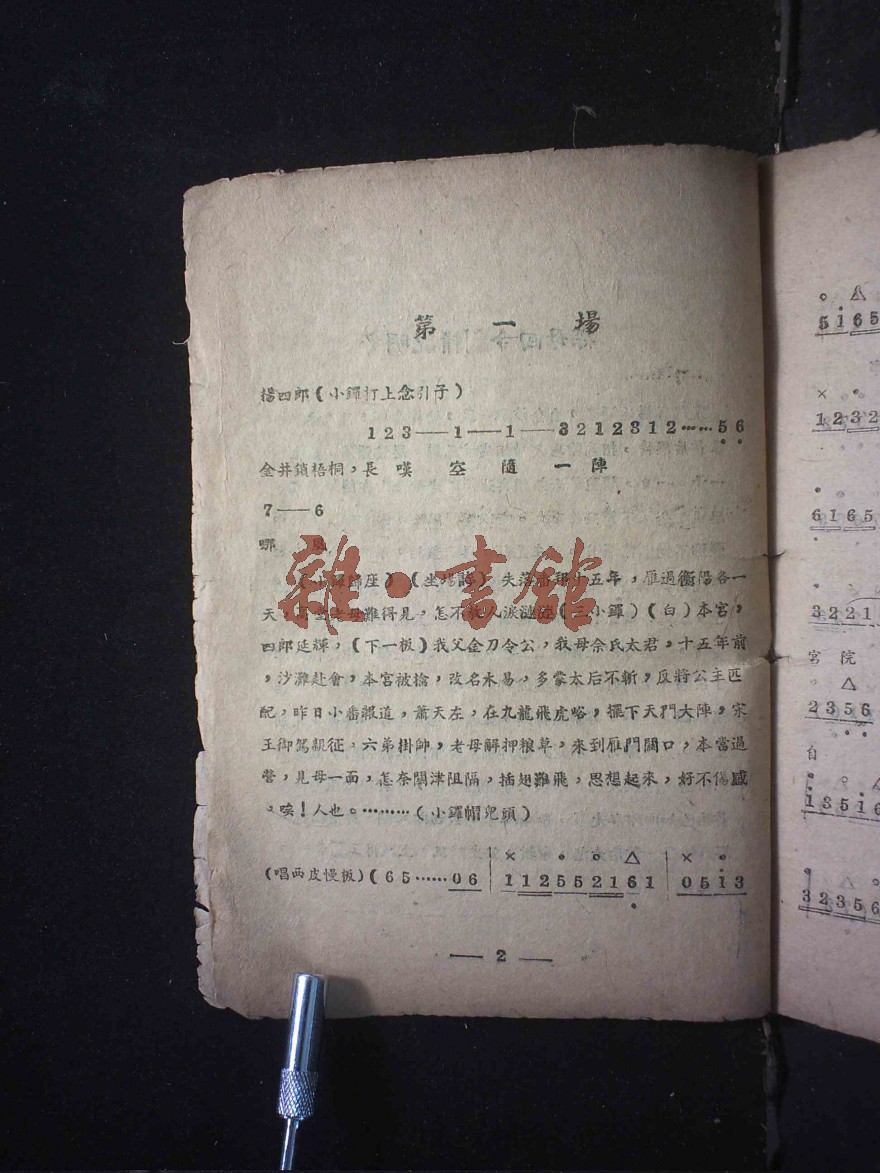 第一場
楊四郎(小鑼打上念引子)
1 2 3 —— 1 —— 1 —— 3 2 1 2 3 1 2 …… 5 6
金井鎖梧桐,長嘆空隨一陣
7 —— 6
哪
雜·書館
(小鑼歸座)(坐場詩)失落番邦十五年,雁過衡陽各一
天,高堂老母難得見,怎不教人淚漣漣(三小鑼)(白)本宮,
四郎延輝,(下一板)我父金刀令公,我母佘氏太君,十五年前
,沙灘赴會,本宮被擒,改名木易,多蒙太后不斬,反將公主匹
配,昨日小番報道,蕭天左,在九龍飛虎峪,擺下天門大陣,宋
王御駕親征,六弟掛帥,老母解押粮草,來到雁門關口,本當過
營,見母一面,怎奈關津阻隔,插翅難飛,思想起來,好不傷感
。唉!人也。………(小鑼帽兒頭)
(唱西皮慢板)( 6 5 …… 0 6 | 1 1 2 5 5 2 1 6 1 | 0 5 i 3
× · ○ △ ×
— 2 —
5 i 6 5
1 2 3 2
6 1 6 5
3 2 2 1
宮 院
2 3 5 6
自
1 3 5 i 6
3 2 3 5 6